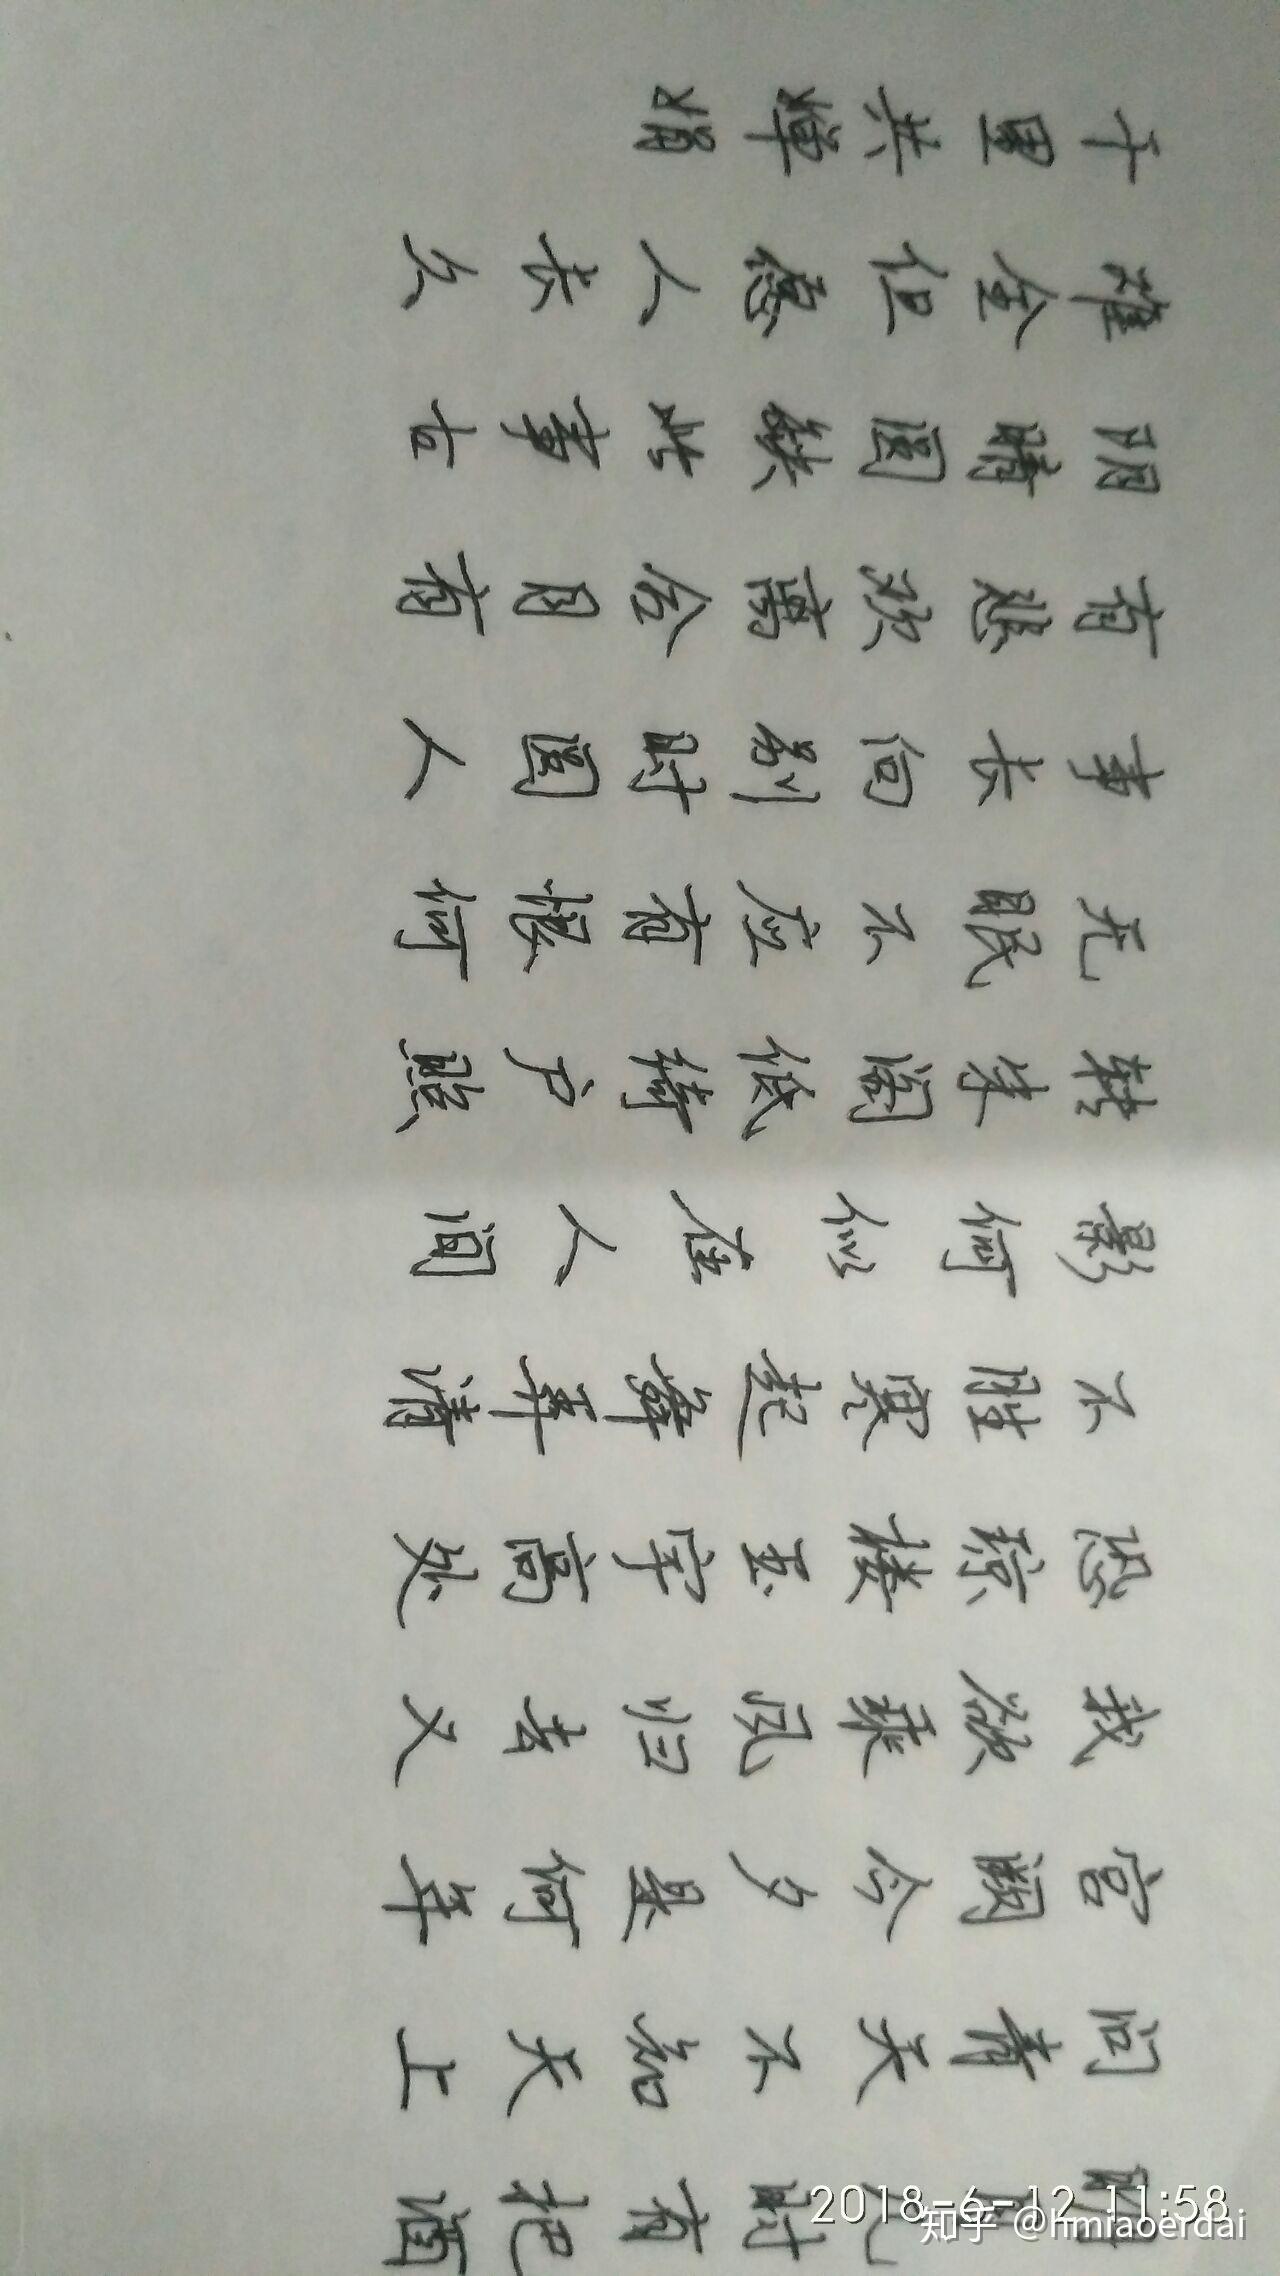 明月几时有把酒
问青天不知天上
宫阙今夕是何年
我欲乘风归去又
恐琼楼玉宇高处
不胜寒起舞弄清
影何似在人间
转朱阁低绮户照
无眠不应有恨何
事长向别时圆人
有悲欢离合月有
阴晴圆缺此事古
难全但愿人长久
千里共婵娟
2018-6-12 11:58
知乎 @hmiaoerdai